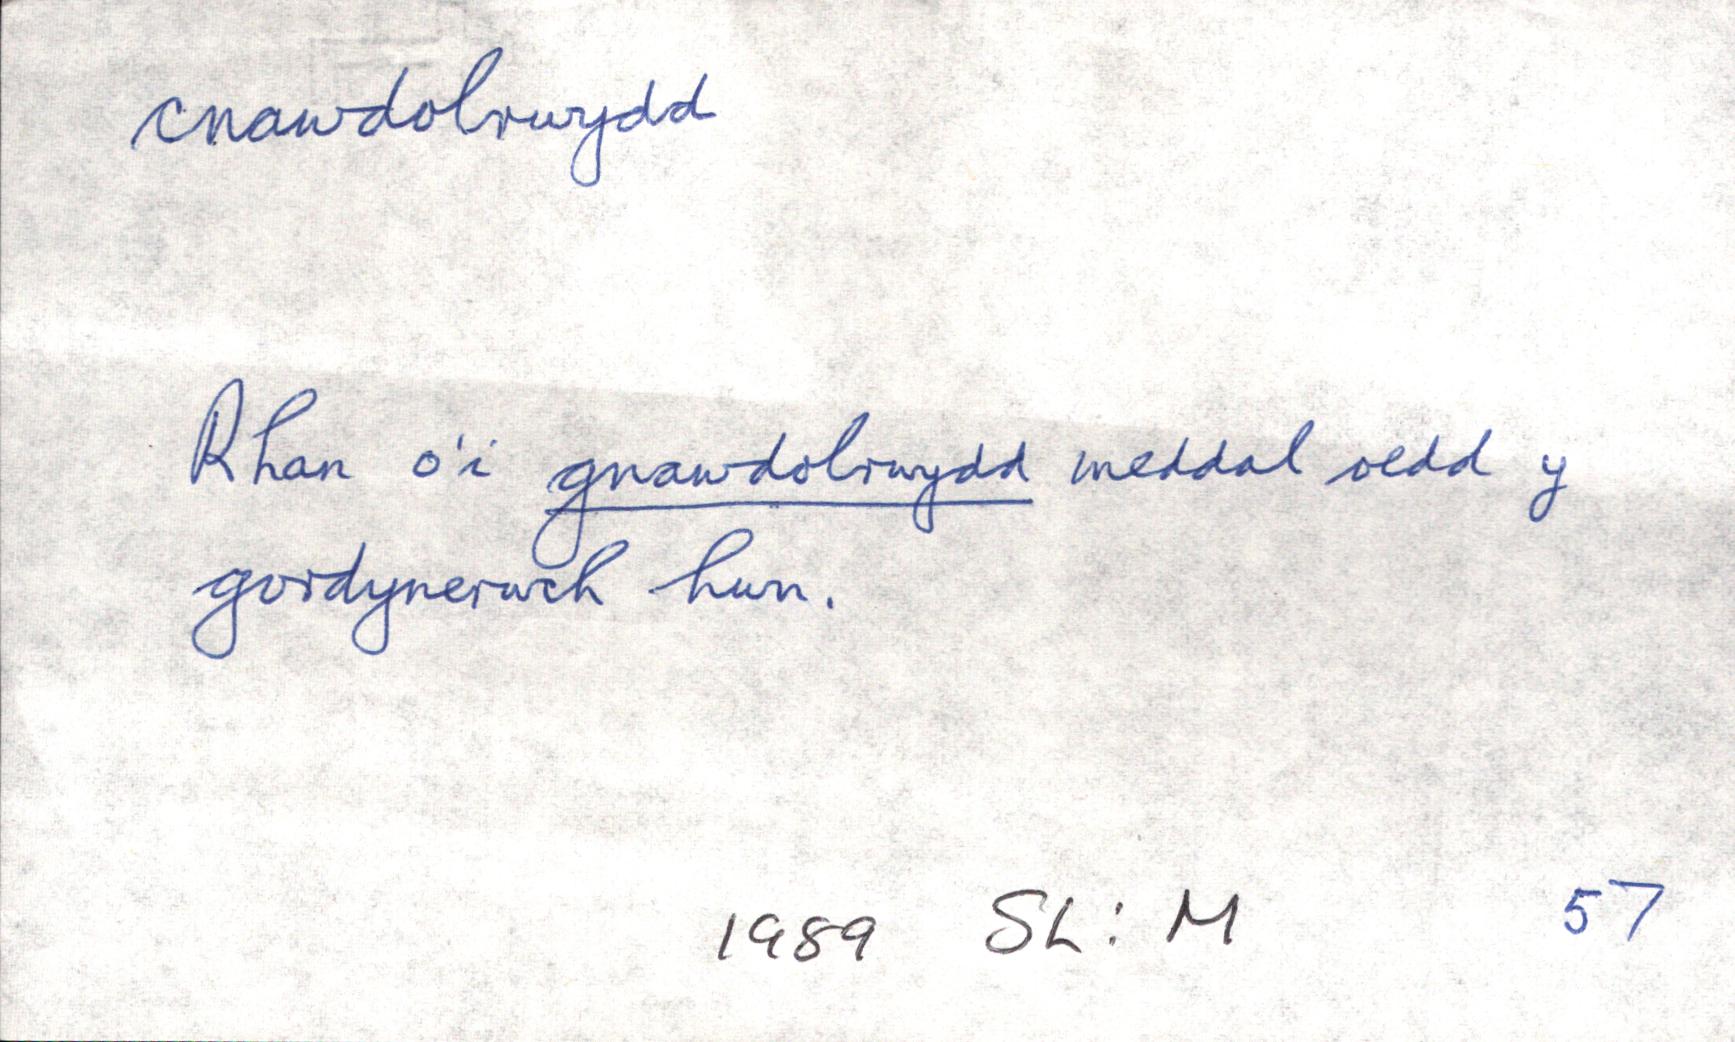 cnawdolrwydd
Rhan o'i gnawdolrwydd meddal oedd y
gordynerwch hwn.
1989 SL: M 57